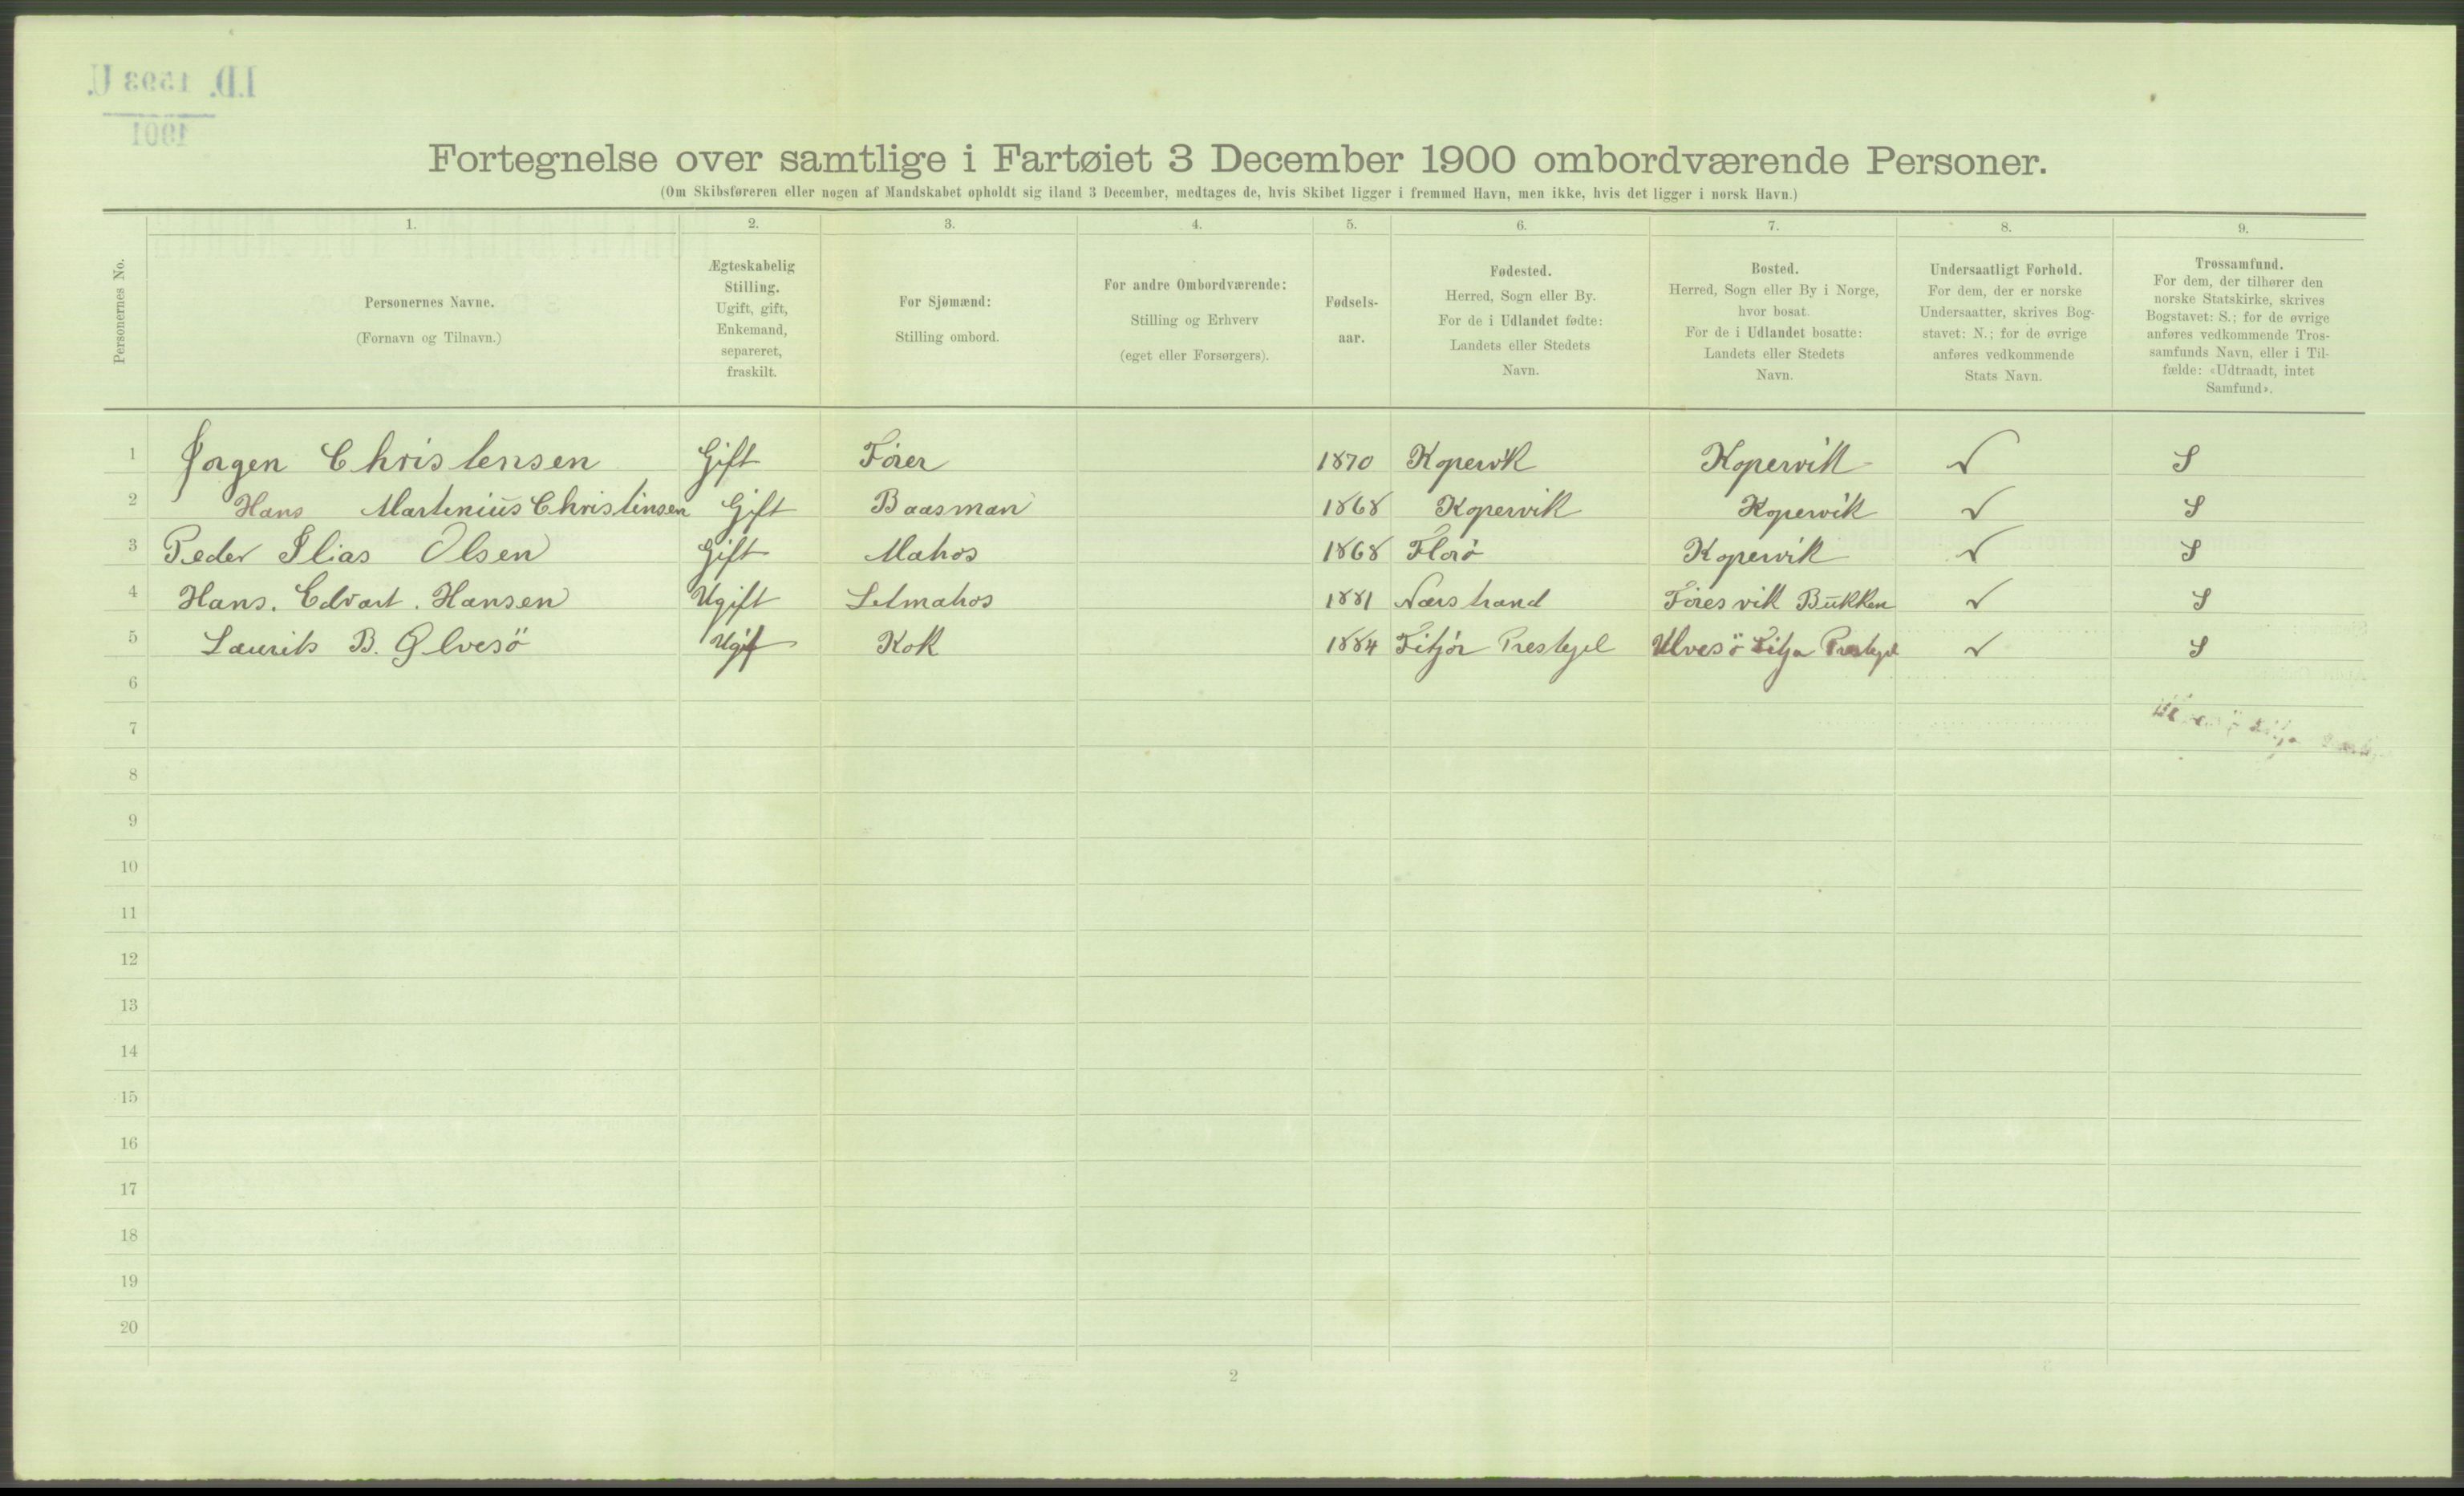 I.D. 1593 U.
1901
Fortegnelse over samtlige i Fartøiet 3 December 1900 ombordværende Personer.
(Om Skibsføreren eller nogen af Mandskabet opholdt sig iland 3 December, medtages de, hvis Skibet ligger i fremmed Havn, men ikke, hvis det ligger i norsk Havn.)
Personernes No.
1. 2. 3. 4. 5. 6. 7. 8. 9.
Personernes Navne.
(Fornavn og Tilnavn.)
Ægteskabelig
Stilling.
Ugift, gift,
Enkemand,
separeret,
fraskilt.
For Sjømænd:
Stilling ombord.
For andre Ombordværende:
Stilling og Erhverv
(eget eller Forsørgers).
Fødsels-
aar.
Fødested.
Herred, Sogn eller By.
For de i Udlandet fødte:
Landets eller Stedets
Navn.
Bosted.
Herred, Sogn eller By i Norge,
hvor bosat.
For de i Udlandet bosatte:
Landets eller Stedets
Navn.
Undersaatligt Forhold.
For dem, der er norske
Undersaatter, skrives Bog-
stavet: N.; for de øvrige
anføres vedkommende
Stats Navn.
Trossamfund.
For dem, der tilhører den
norske Statskirke, skrives
Bogstavet: S.; for de øvrige
anføres vedkommende Tros-
samfunds Navn, eller i Til-
fælde: «Udtraadt, intet
Samfund».
1 Jorgen Christensen Gift Förer 1870 Kopervik Kopervik N S
2 Hans Martenius Christensen Gift Baasman 1868 Kopervik Kopervik N S
3 Peder Elias Olsen Gift Matros 1868 Florö Kopervik N S
4 Hans. Edvart. Hansen Ugift Letmatros 1881 Nærstrand Föresvik Bukken N S
5 Laurits B. Ølvesö Ugift Kok 1884 Fitjör Prestegel Ulvesö Fitja Prestegel N S
6
7
8
9
10
11
12
13
14
15
16
17
18
19
20
2